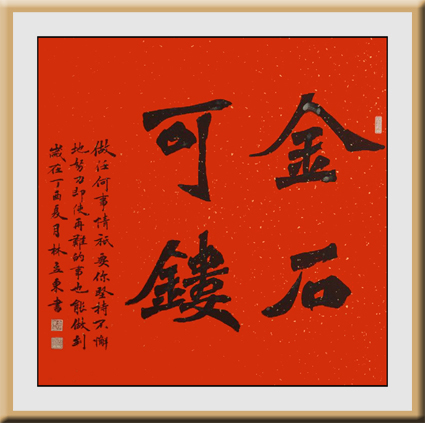 金石
可鏤
做任何事情祇要你堅持不懈
地努力即使再難的事也能做到
歲在丁酉夏月林孟東書